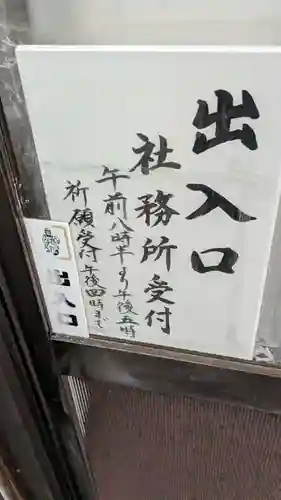 出入口
社務所受付
午前八時半より午後五時
祈願受付午後四時まで
出入口